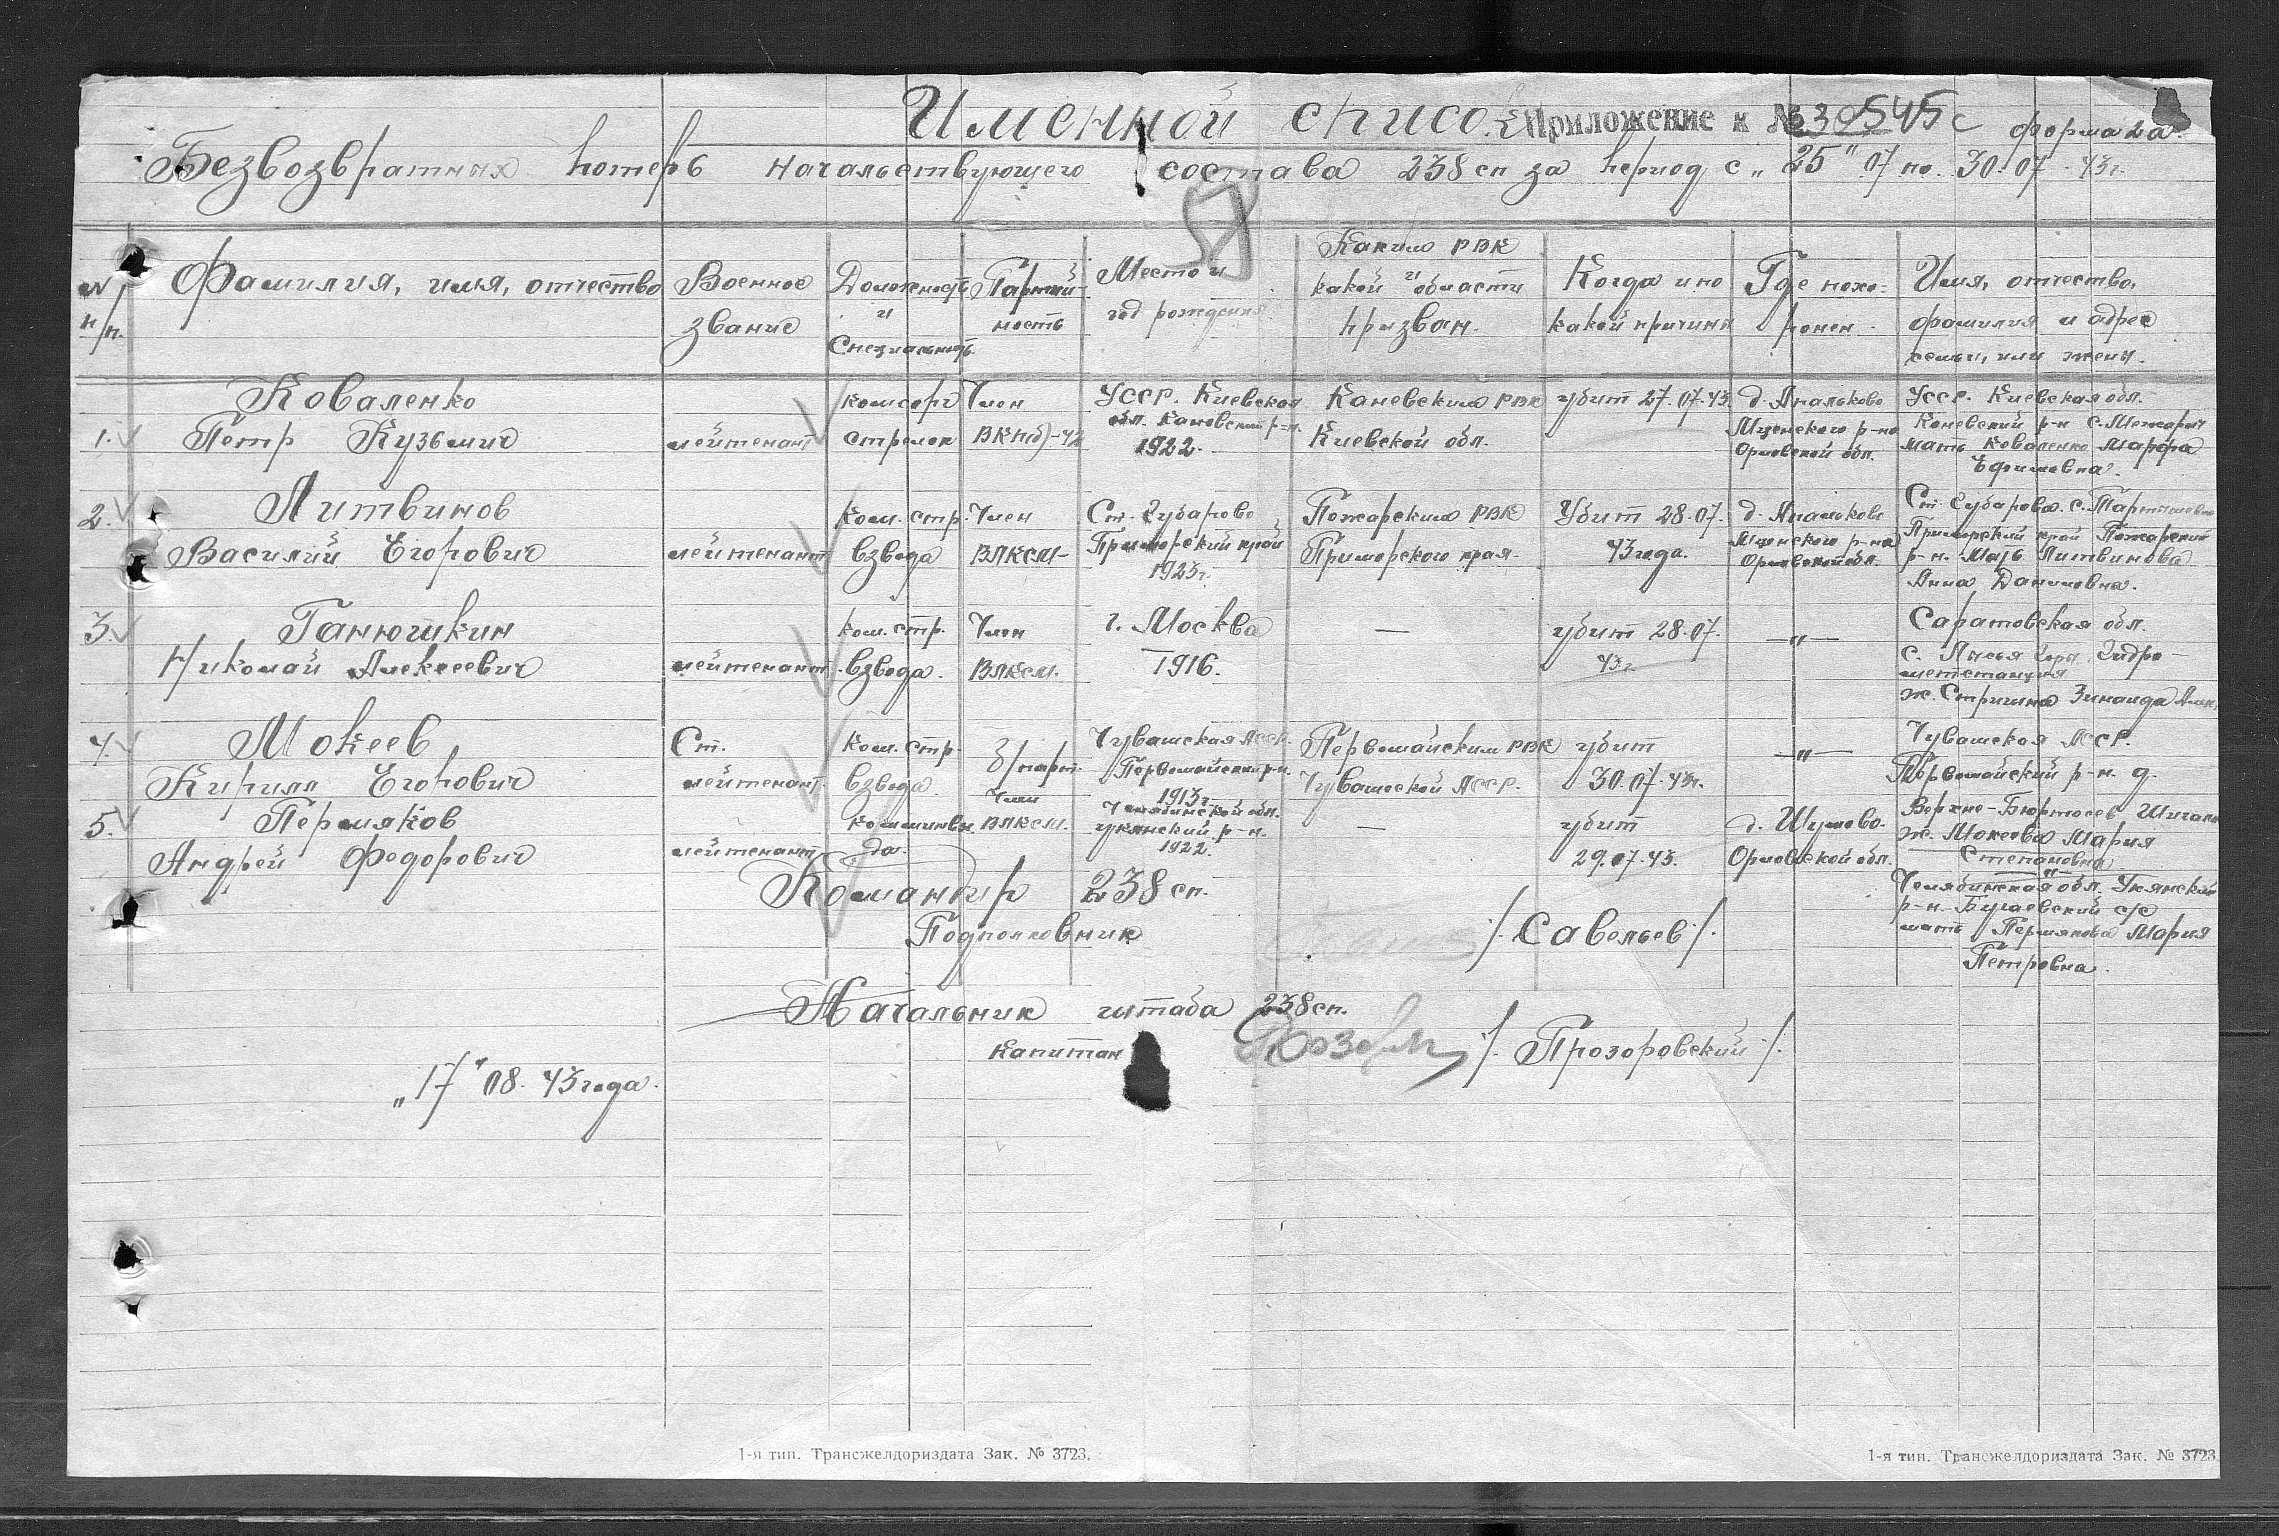 Именной список
Приложение к № 30545с
форма 2а.
Безвозвратных потерь начальствующего состава 238 сп за период с „25" 07 по 30.07.43г.
№ п/п.
Фамилия, имя, отчество
Военное звание
Должность и специальность
Партийность
Место и год рождения
Каким РВК и какой области призван.
Когда и по какой причине
Где похоронен.
Имя, отчество, фамилия и адрес семьи, или жены.
1. Коваленко Петр Кузьмич
лейтенант
комсорг стрелок
Член ВКП(б)-42
УССР. Киевская обл. Каневский р-н. 1922.
Каневским РВК Киевской обл.
убит 27.07.43.
Мценского р-на Орловской обл.
УССР. Киевская обл. Каневский р-н с. Межирич мать Коваленко Марфа Ефимовна.
2. Литвинов Василий Егорович
лейтенант
ком. стр. взвода
Член ВЛКСМ-
Ст. Губарово Приморский край 1923г.
Пожарским РВК Приморского края.
Убит 28.07. 43 года.
Мценского р-на Орловской обл.
Ст. Губарово. Приморский край Пожарский р-н. Мать Литвинова Анна Даниловна.
3. Ганюшкин Николай Алексеевич
лейтенант
ком. стр. взвода.
Член ВЛКСМ.
г. Москва 1916.
—
убит 28.07. 43г.
—„—
Саратовская обл. с. Лысые Горы. Гидрометстанция ж. Стригина Зинаида
4. Мокеев Кирилл Егорович
Ст. лейтенант
ком. стр. взвода
б/парт.
Чувашская АССР. Первомайский р-н. 1913г.
Первомайским РВК Чувашской АССР.
убит 30.07.43г.
—„—
Чувашская АССР. Первомайский р-н. д.
ж. Мокеева Мария Степановна
5. Пермяков Андрей Федорович
лейтенант
ком. миномв. взвода.
Член ВЛКСМ.
Челябинской обл. Укянский р-н. 1922.
—
убит 29.07.43.
Орловской обл.
Челябинская обл. Укянский р-н. Бугаевский с/с мать Пермякова Мария Петровна.
Командир 238 сп.
Подполковник /Савельев/.
Начальник штаба 238 сп.
капитан /Прозоровский/.
„17" 08. 43 года.
1-я тип. Трансжелдориздата Зак. № 3723.
1-я тип. Трансжелдориздата Зак. № 3723.